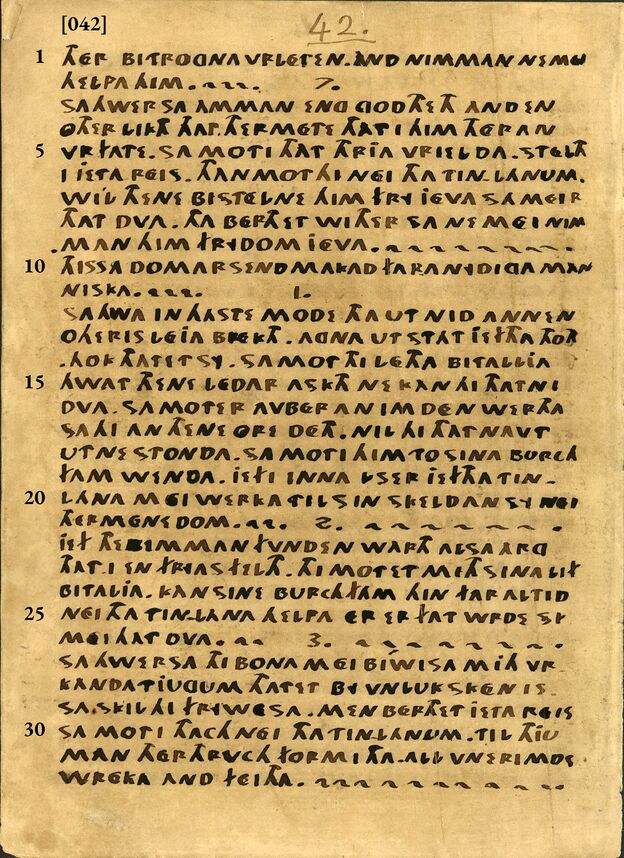 [042]
42.
1 THER BITROGNA VRLETEN. AND NIMMAN NEMEI
HELPA HIM. 7.
SAHWERSA AMMAN ENG GOD HETH AND EN
OTHER LIKTH THAT THERMETE THAT I HIM THERAN
5 VRFATE. SA MOT I THAT THRIA VRIELDA. STELTH
I IETA REIS. THAN MOT HI NEI THA TINLANUM.
WIL THENE BISTELNE HIM FRY IEVA SA MEI R
THAT DVA. THA BERTH ET WITHER SA NE MEI NIM
MAN HIM FRYDOM IEVA.
10 THISSA DOMAR SEND MAKAD FARA NYDIGA MAN
NISKA. 1.
SAHWA IN HASTE MODE THA UT NID ANNEN
OTHERIS LEIA BREKTH. AGNA UT STAT IEFTHA THOTH
HOK THATET SY. SA MOT THI LETHA BITALLIA
15 HWAT THENE LEDAR ASKTH NE KAN HI THAT NI
DVA. SA MOTER AVBER AN IM DEN WERTHA
SA HI AN THENE ORE DETH. NIL HI THAT NAVT
UTNE STONDA. SA MOT I HIM TO SINA BURCH
FAM WENDA. IEF I INNA YSER IEFTHA TIN-
20 LANA MEI WERKA TIL SIN SKELD AN SY NEI
THER MENE DOM. 2.
IEF THER IMMAN FUNDEN WARTH ALSA ARG
THAT I EN FRIAS FELTH. HI MOT ET MITH SINA LIF
BITALIA. KAN SINE BURCHFAM HIN FAR ALTID
25 NEI THA TINLANA HELPA ER ER FAT WRDE SI
MEI HAT DVA. 3.
SAHWERSA THI BONA MEI BIWISA MITH VR
KANDA TIUGUM THATET BY VNLUK SKEN IS
SA SKIL HI FRY WESA. MEN BERTH ET IETA REIS
30 SA MOT I THACH NEI THA TINLANUM. TIL THIU
MAN THERTHRUCH FORMITHA ALL VNERIMDE
WREKA AND FEITHA.